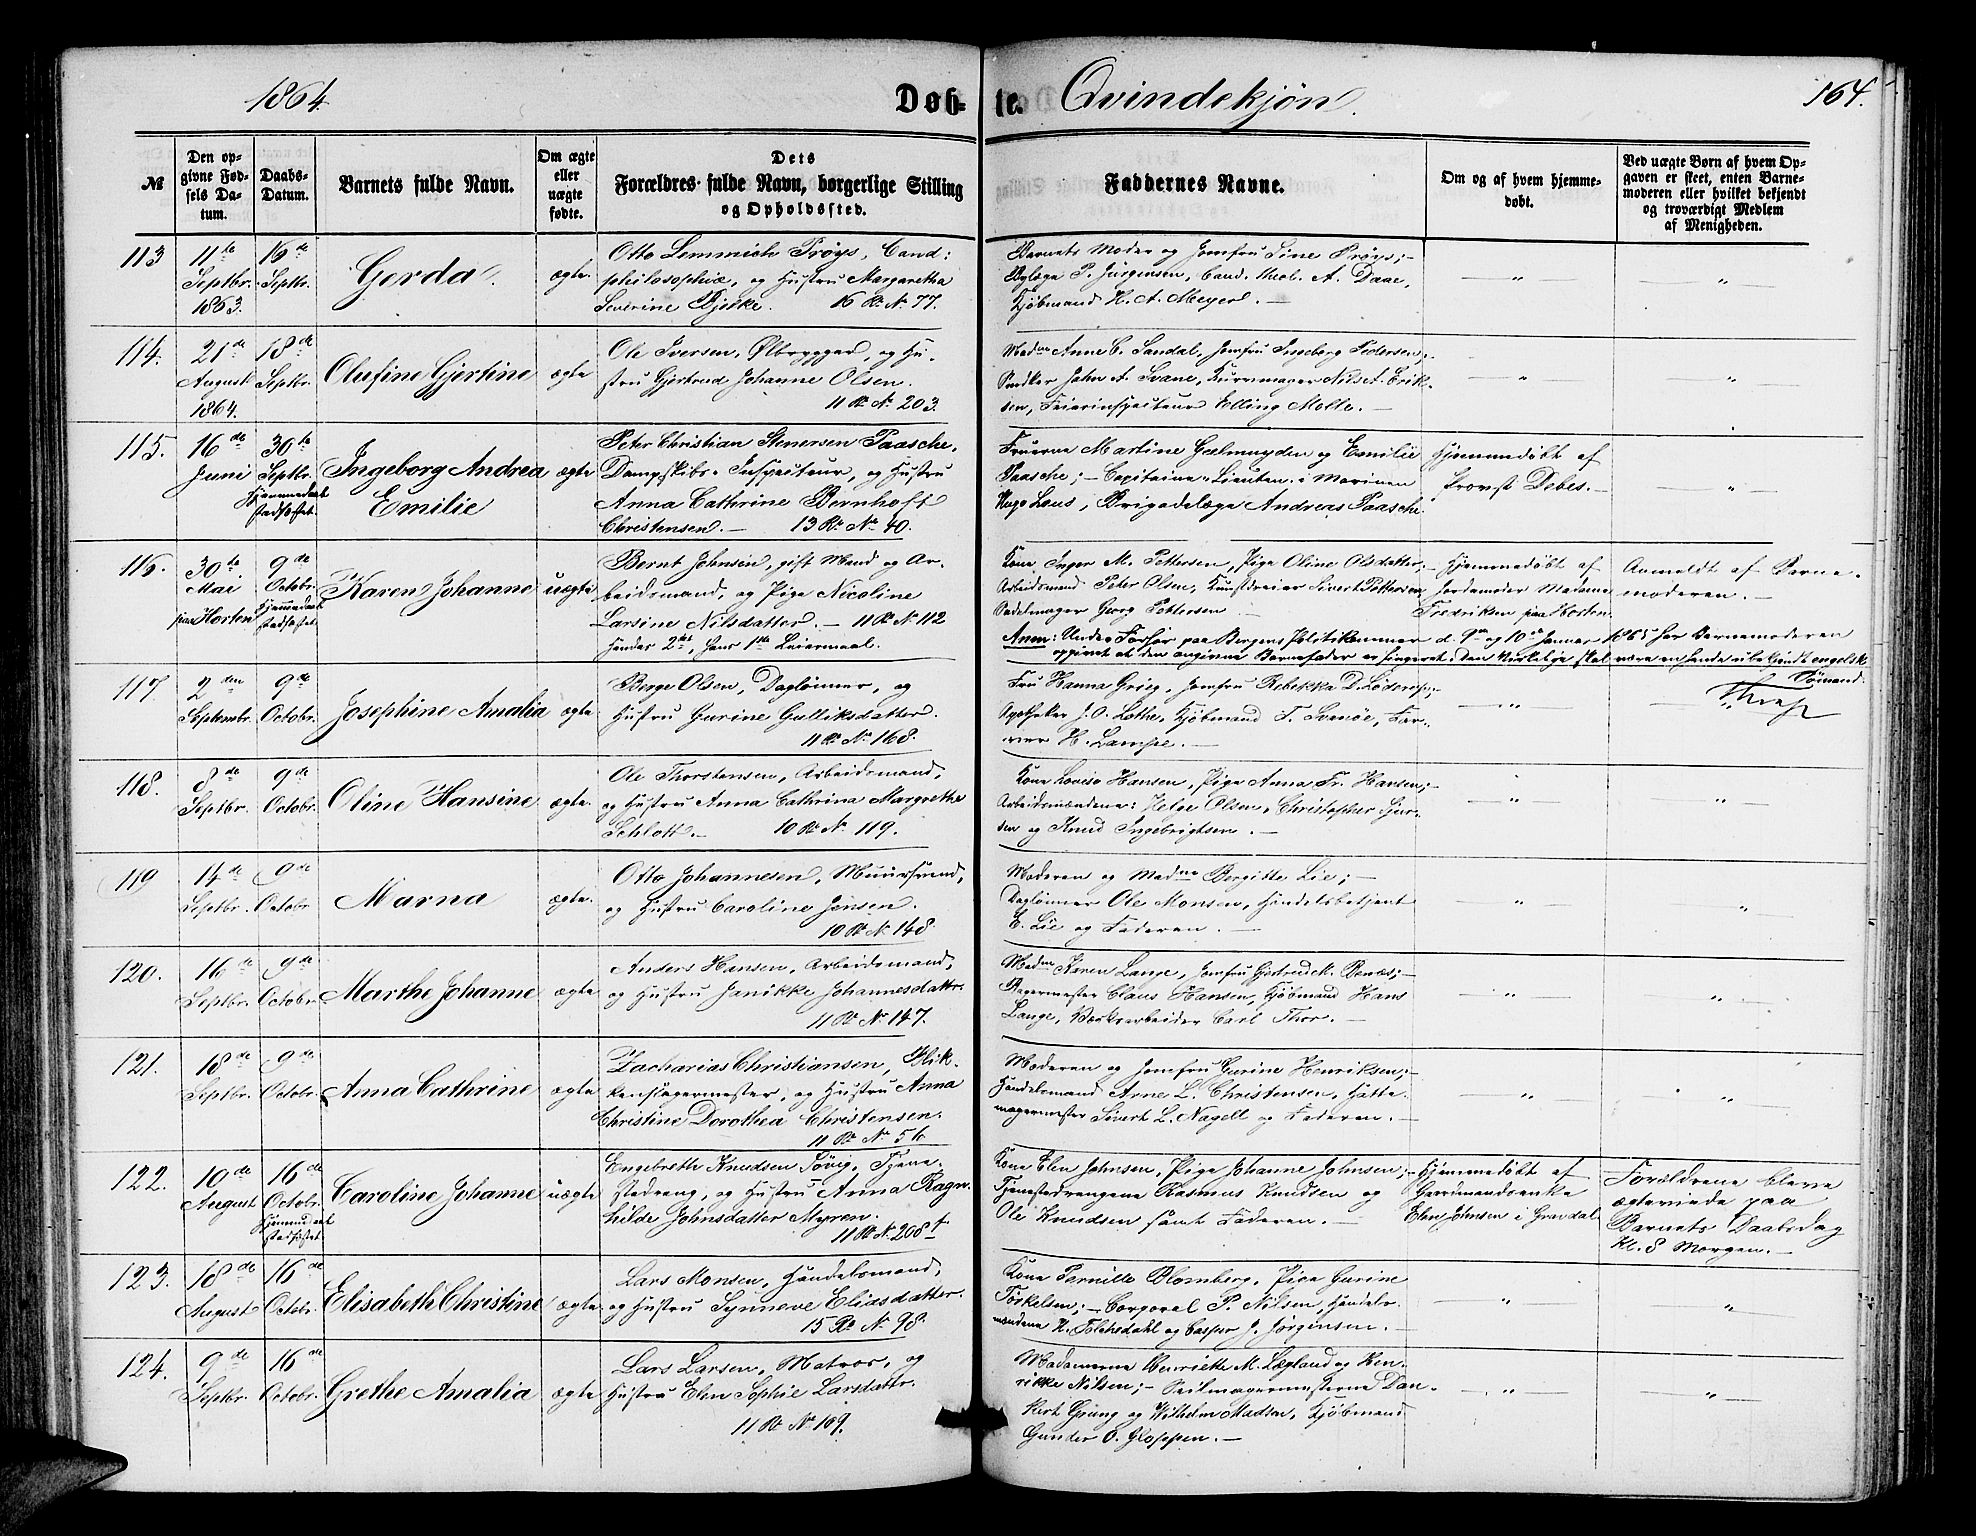 1864.
Døb-
te.
Qvindekjøn.
164.
№
Den op-
givne Fød-
sels Da-
tum.
Daabs-
Datum.
Barnets fulde Navn.
Om ægte
eller
uægte
fødte.
Dets
Forældres fulde Navn, borgerlige Stilling
og Opholdssted.
Faddernes Navne.
Om og af hvem hjemme-
døbt.
Ved uægte Børn af hvem Op-
gaven er skeet, enten Barne-
moderen eller hvilket bekjendt
og troværdigt Medlem
af Menigheden.
113
11te
Septbr.
1863.
16de
Septbr.
Gerda.
ægte.
Otto Lemmich Prøys, Cand:
philosophiæ, og Hustru Margaretha
Severine Bjelke. 16 R. N. 77.
Barnets Moder og Jomfru Sine Prøys;-
Bylæge P. Jürgensen, Cand. theol. A. Daae,
Kjøbmand H. A. Meyer. -
"
"
114.
21de
August
1864.
18de
Septbr.
Olufine Gjertine
ægte
Ole Iversen, Ølbrygger, og Hu-
stru Gjertrud Johanne Olsen.
11 R. N. 203.
Madme Anne C. Sandal, Jomfru Ingeborg Pedersen;-
Snedker John A. Svane, Kurvmager Nils A. Erik-
sen, Feierinspecteur Elling Molte. -
"
"
115.
16de
Juni
30te
Septbr.
Hjemmedaab
stadfæstet.
Ingeborg Andrea
Emilie
ægte
Peter Christian Stenersen Paasche,
Dampskibs-Inspecteur, og Hustru
Anna Cathrine Bernhoft
Christensen. - 13 R. No 40.
Fruerne Martine Gælmuyden og Emilie
Paasche; - Capitaine-Lieuten. i Marinen
Hugo Lous, Brigadelæge Andreas Paasche.
Hjemmedøbt af
Provst Debes. -
"
116.
30te
Mai
paa Horten
9de
Octobr.
Hjemmedaab
stadfæstet.
Karen Johanne
uægte
Bernt Johnsen, gift Mand og Ar-
beidsmand, og Pige Nicoline
Larsine Nilsdatter. - 11 R. No 112
Hendes 2det, Hans 1ste Leiermaal.
Kone Inger M. Pettersen, Pige Oline Olsdatter;-
Arbeidsmand Peter Olsen, Kunstdreier Sivert Pettersen,
Sadelmager Georg Pettersen
Hjemmedøbt af
Jordemoder Madame
Fredriksen paa Horten.
Anmeldt af Barne-
moderen. -
Anm: Under Forhør paa Bergens Politikammer d. 9de og 10de Januar 1865 har Barnemoderen
opgivet at den angivne Barnefader er fingeret; den virkelige skal være en hende ubekjendt engelsk
Sømand.
117.
2den
Septembr.
9de
Octobr.
Josephine Amalia
ægte.
Berge Olsen, Daglønner, og
Hustru Gurine Gulliksdatter.
11 R. No 168.
Fru Hanna Grieg, Jomfru Rebekka D. Lødersen;-
Apotheker J. O. Lothe, Kjøbmand T. Svanøe, Far-
ver H. Lampe. -
"
118.
8de
Septbr.
9de
Octobr.
Oline Hansine
ægte.
Ole Thorstensen, Arbeidsmand,
og Hustru Anna Cathrina Margrethe
Schlott. - 10 R. No 119.
Kone Lovise Hansen, Pige Anna Fr. Hansen;-
Arbeidsmændene: Helge Olsen, Christopher Sjur-
sen og Knud Ingebrigtsen. -
"
"
119
14de
Septbr.
9de
Octobr
Marna
ægte.
Otto Johannesen, Muursvend,
og Hustru Caroline Jensen.
10 R. N. 148.
Moderen og Madme Bergitte Lie; -
Daglønner Ole Monsen, Handelsbetjent
E. Lie og Faderen. -
"
"
120.
16de
Septbr.
9de
Octobr.
Marthe Johanne
ægte
Anders Hansen, Arbeidsmand,
og Hustru Janikke Johannesdatter.
11 R. No 147.
Madme Karen Lange, Jomfru Gjertrud M. Benæs;-
Bagermester Claus Hansen, Kjøbmand Hans
Lange, Værksarbeider Carl Thor. -
"
"
121.
18de
Septbr.
9de
Octobr.
Anna Cathrine
ægte
Zacharias Christiansen, Blik-
kenslagermester, og Hustru Anna
Christine Dorothea Christensen.
11 R. No 56.
Moderen og Jomfru Gurine Henriksen;-
Handelsmand Arne L. Christensen, Hatte-
magermester Sivert L. Nagell og Faderen. -
"
"
122.
10de
August
16de
Octobr.
Hjemmedaab
stadfæstet.
Caroline Johanne
uægte
Engebreth Knudsen Søvig, Tjene-
stedreng, og Hustru Anna Ragn-
hilde Johnsdatter Myren.
11 R. N. 268 f.
Kone Elen Johnsen, Pige Johanne Johnsen;-
Tjenestedrengene Rasmus Knudsen og
Ole Knudsen samt Faderen. -
Hjemmedøbt af
Gaardmandsenke
Elen Johnsen i Gravdal
Forældrene bleve
ægteviede paa
Barnets Daabsdag
Kl. 8 Morgen. -
123.
18de
August
16de
Octobr.
Elisabeth Christine
ægte.
Lars Monsen, Handelsmand,
og Hustru Synneve Eliasdatter.
15 R. N. 98.
Kone Pernille Blomberg, Pige Gurine
Torkelsen; - Corporal P. Nilsen, Handels-
mændene H. Folchedahl og Casper J. Jørgensen. -
"
"
124.
9de
Septbr.
16de
Octobr.
Grethe Amalia
ægte
Lars Larsen, Matros, og
Hustru Elen Sophie Larsdattr.
11 R. No 109.
Madamerne Henriette M. Lægland og Hen-
rikke Nilsen; - Seilmagermesterne Dan-
kert Grung og Wilhelm Madsen, Kjøbmand
Gunder O. Gloppen. -
"
"